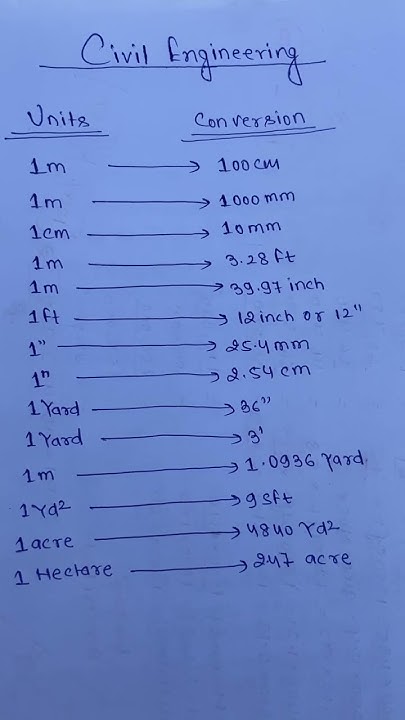 Civil Engineering
Units Conversion
1m → 100cm
1m → 1000 mm
1cm → 10mm
1m → 3.28 ft
1m → 39.97 inch
1ft → 12 inch or 12"
1" → 25.4 mm
1" → 2.54 cm
1 Yard → 36"
1 Yard → 3'
1m → 1.0936 Yard
1 Yd² → 9 Sft
1 acre → 4840 Yd²
1 Hectare → 247 acre